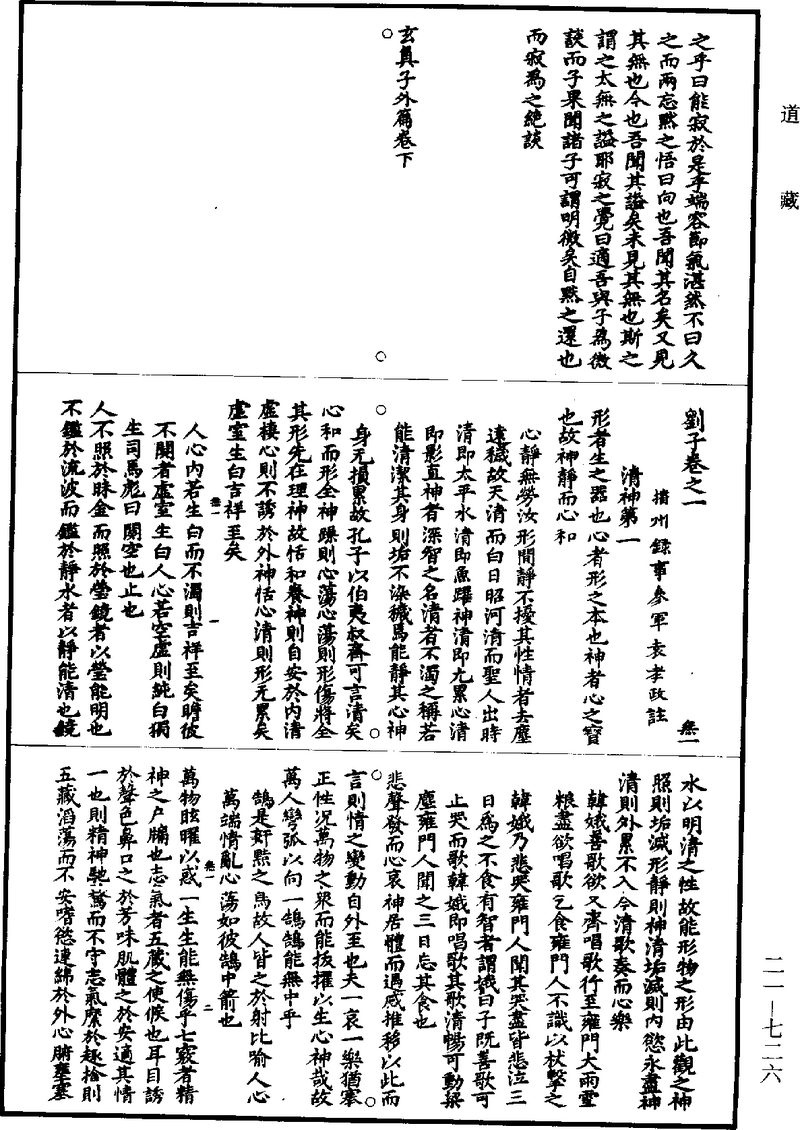 道藏
之乎曰能寂於是乎端容節氣湛然不曰久
之而兩忘默之悟曰向也吾聞其名矣又見
其無也今也吾聞其謚矣未見其無也斯之
謂之太無之謚耶寂之覺曰適吾與子爲微
談而子果聞諸子可謂明微矣自默之還也
而寂爲之絶談
玄真子外篇卷下
劉子卷之一 無一
播州錄事參軍袁孝政註
清神第一
形者生之器也心者形之本也神者心之寳
也故神靜而心和
心靜無勞汝形閒靜不擾其性情者去塵
遠穢故天清而白日昭河清而聖人出時
清即太平水清即魚躍神清即尤累心清
即影直神者深智之名清者不濁之稱若
能清潔其身則垢不染穢焉能靜其心神
身无損累故孔子以伯夷叔齊可言清矣
心和而形全神躁則心蕩心蕩則形傷將全
其形先在理神故恬和養神則自安於内清
虛棲心則不誘於外神恬心清則形无累矣
虛室生白吉祥至矣
人心内若生白而不濁則吉祥至矣瞻彼
不闋者虛室生白人心若空虛則純白獨
生司馬彪曰闋空也止也
人不照於昧金而照於瑩鏡者以瑩能明也
不鑑於流波而鑑於靜水者以靜能清也鏡
水以明清之性故能形物之形由此觀之神
照則垢滅形靜則神清垢滅則内慾永盡神
清則外累不入今清歌奏而心樂
韓娥善歌欲又齊唱歌行至雍門大雨雪
粮盡欲唱歌乞食雍門人不識以杖擊之
韓娥乃悲哭雍門人聞其哭盡皆悲泣三
日爲之不食有智者謂娥曰子既善歌可
止哭而歌韓娥即唱歌其歌清暢可動梁
塵雍門人聞之三日忘其食也
悲聲發而心哀神居體而遇感推移以此而
言則情之變動自外至也夫一哀一樂猶搴
正性况萬物之衆而能拔擢以生心神哉故
萬人彎弧以向一鵠鵠能無中乎
鵠是奸黠之鳥故人皆之於射比喻人心
萬端情亂心蕩如彼鵠中箭也
萬物眩曜以惑一生生能無傷乎七竅者精
神之户牖也志氣者五藏之使候也耳目誘
於聲色鼻口之於芳味肌體之於安適其情
一也則精神馳騖而不守志氣縻於趣捨則
五藏滔蕩而不安嗜慾連綿於外心腑壅塞
二一—七二六